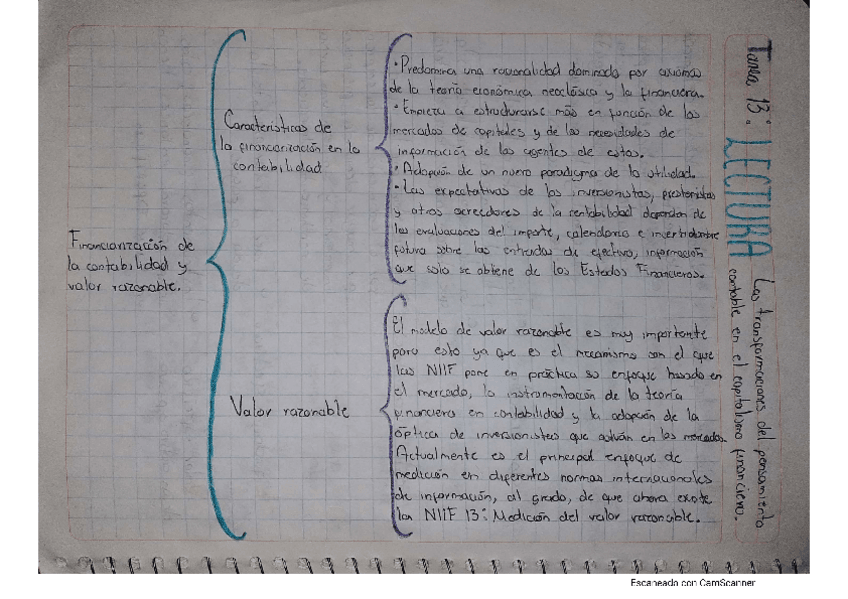 Tarea 13: LECTURA
Las transformaciones del pensamiento
contable en el capitalismo financiero.
Financiarización de
la contabilidad y
valor razonable.
Características de
la financiarización en la
contabilidad
• Predomina una racionalidad dominada por axiomas
de la teoría económica neoclásica y la financiera.
• Empieza a estructurarse más en función de los
mercados de capitales y de las necesidades de
información de los agentes de estos.
• Adopción de un nuevo paradigma de la utilidad.
• Las expectativas de los inversionistas, prestamistas
y otros acreedores de la rentabilidad dependen de
las evaluaciones del importe, calendario e incertidumbre
futura sobre las entradas de efectivo, información
que solo se obtiene de los Estados Financieros.
Valor razonable
El modelo de valor razonable es muy importante
para esto ya que es el mecanismo con el que
las NIIF pone en práctica su enfoque basado en
el mercado, la instrumentación de la teoría
financiera en contabilidad y la adopción de la
óptica de inversionistas que actúan en los mercados.
Actualmente es el principal enfoque de
medición en diferentes normas internacionales
de información, al grado, de que ahora existe
la NIIF 13: Medición del valor razonable.
Escaneado con CamScanner